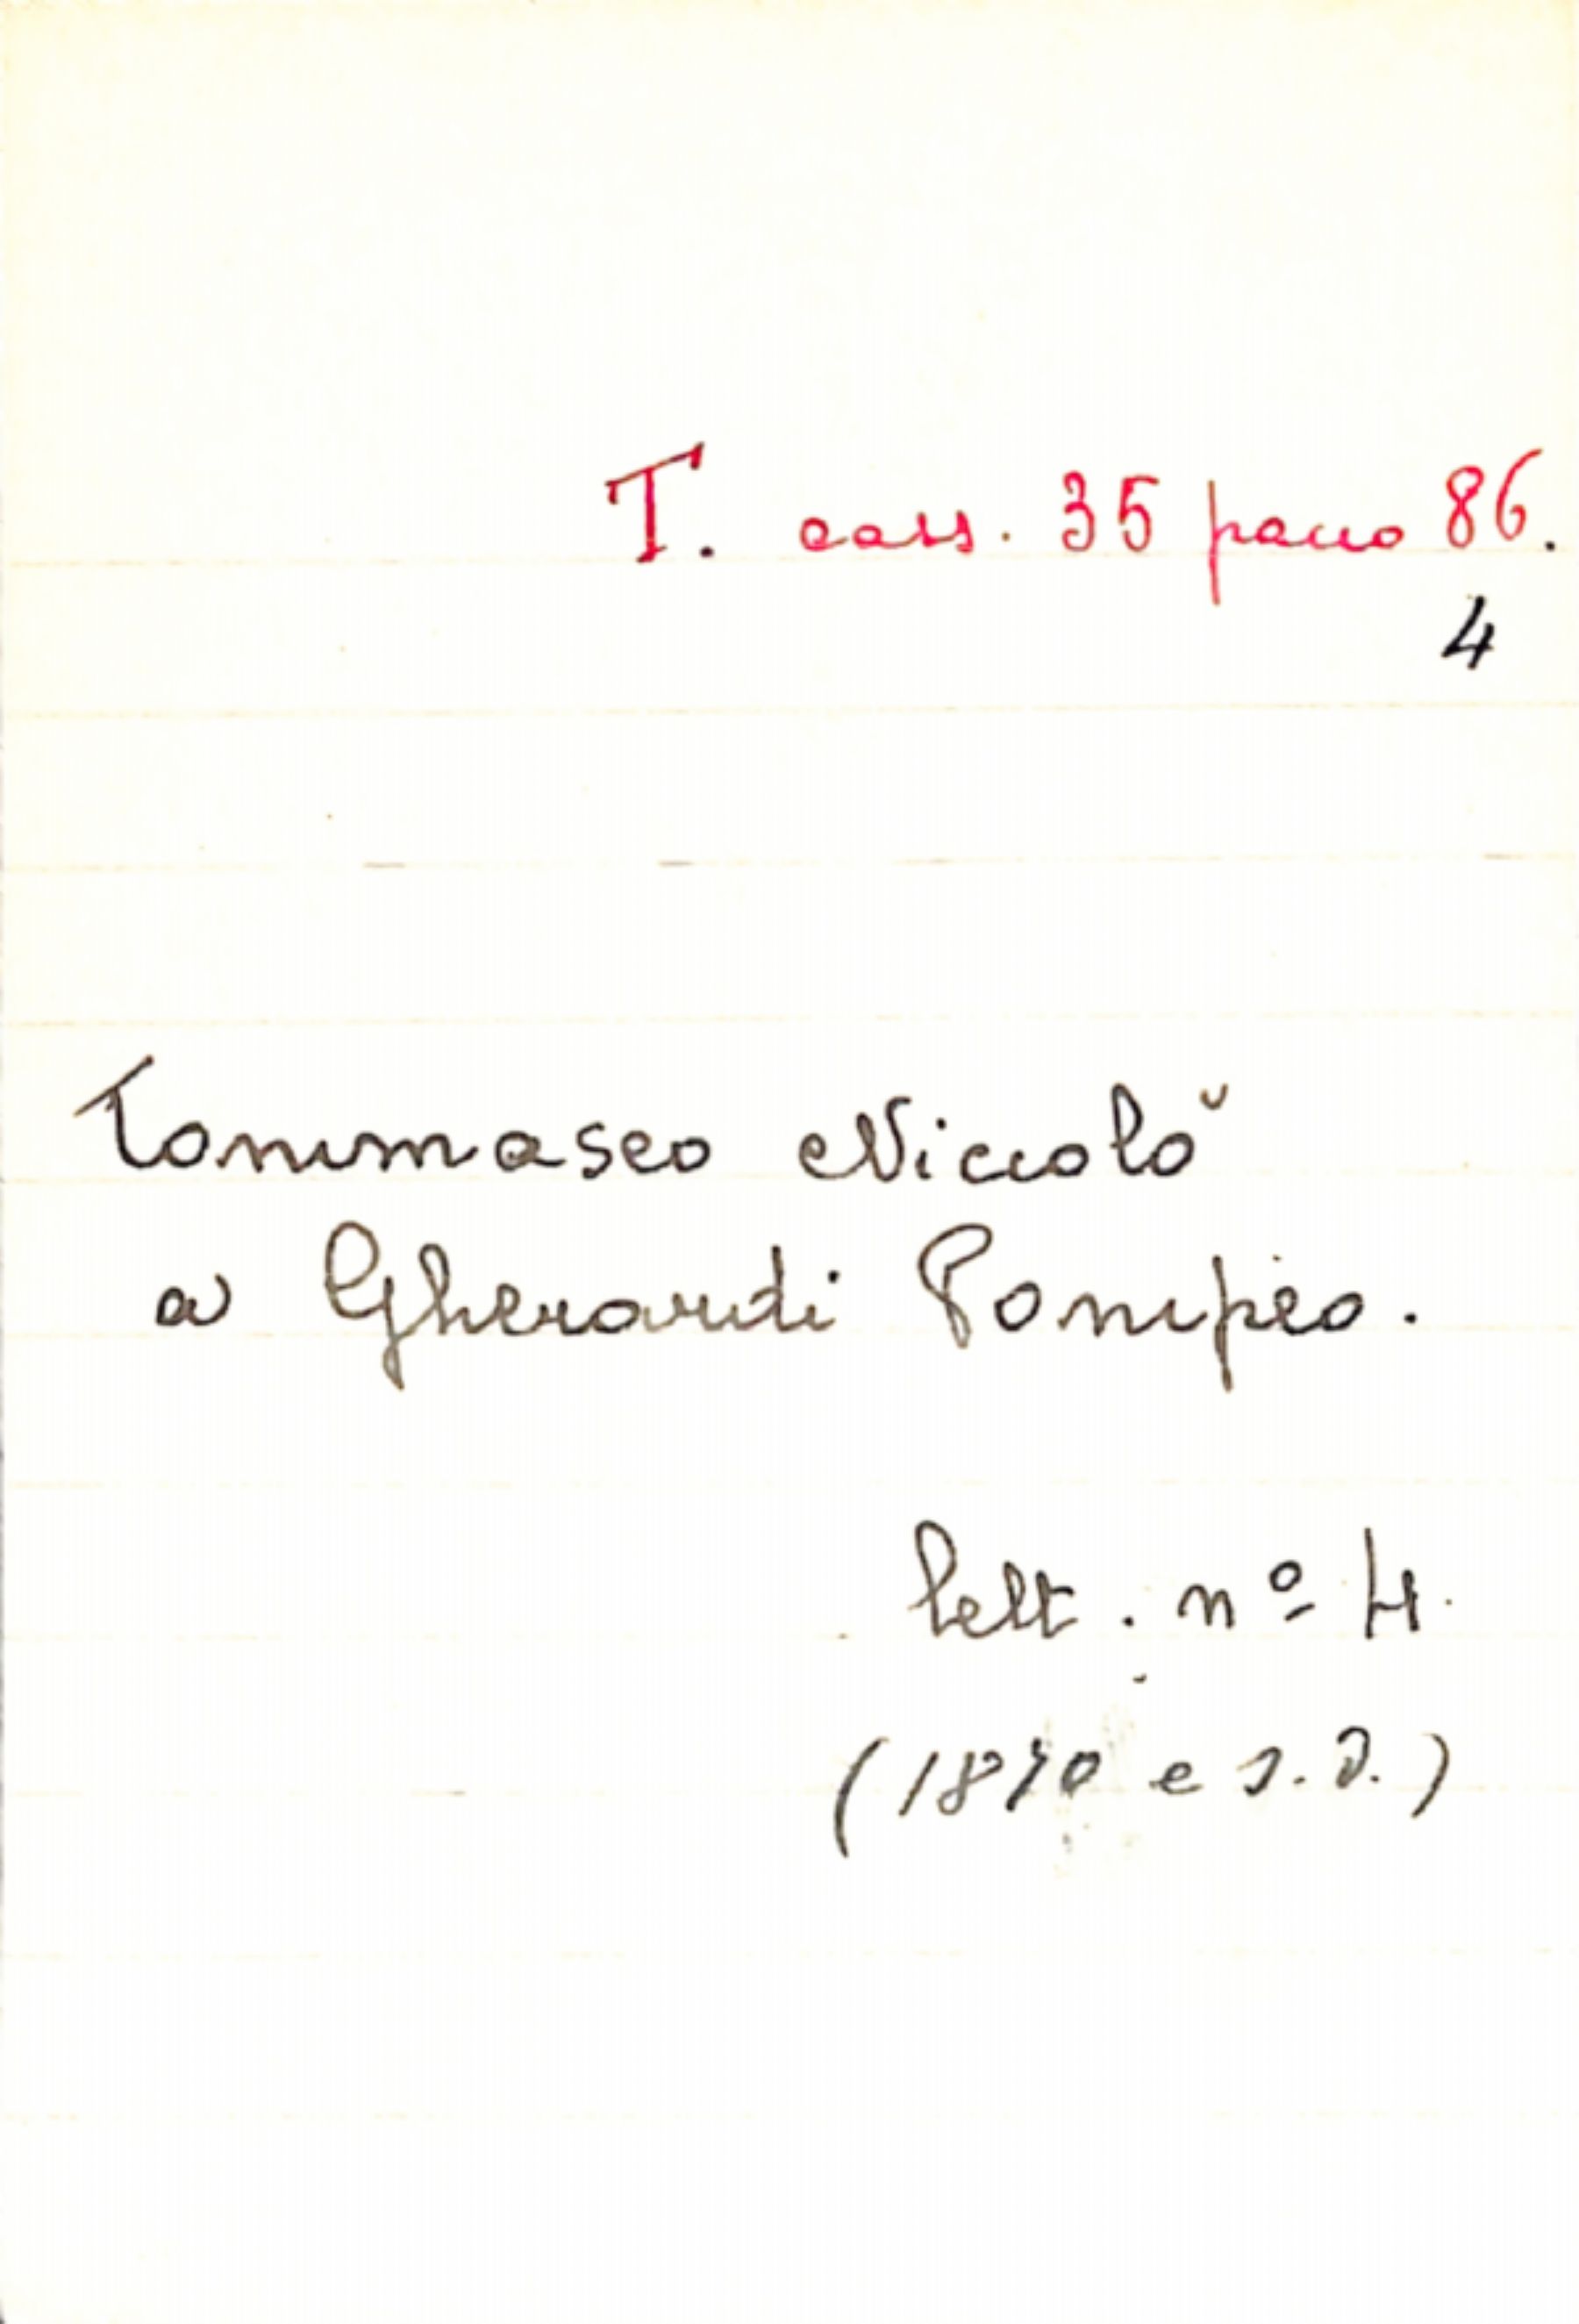 T. cass. 35 pacco 86.
4
Tommaseo Niccolò
a Gherardi Pompeo.
lett. nº 4.
(1870 e s.d.)